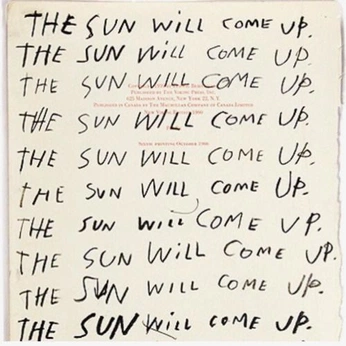 THE SUN WILL COME UP.
THE SUN WILL COME UP.
THE SUN WILL COME UP.
PUBLISHED BY THE VIKING PRESS, INC.
625 MADISON AVENUE, NEW YORK 22, N.Y.
PUBLISHED IN CANADA BY THE MACMILLAN COMPANY OF CANADA LIMITED
THE SUN WILL COME UP.
SIXTH PRINTING OCTOBER 1960
THE SUN WILL COME UP.
THE SUN WILL COME UP.
THE SUN WILL COME UP.
THE SUN WILL COME UP.
THE SUN WILL COME UP.
THE SUN WILL COME UP.